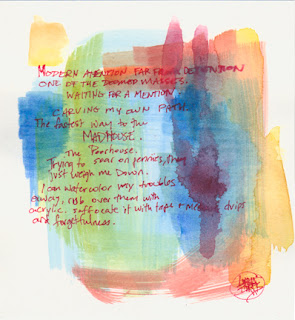 MODERN ATTENTION FAR FROM DETENTION
ONE OF THE DOOMED MASSES.
WAITING FOR A MENTION
CARVING MY OWN PATH
The fastest way to the
MADHOUSE.
The Poorhouse.
Trying to soar on pennies, they
Just weigh me Down.
I can watercolor my troubles
away, rub over them with
acrylic. suffocate it with tape + medium drips
and forgetfulness.